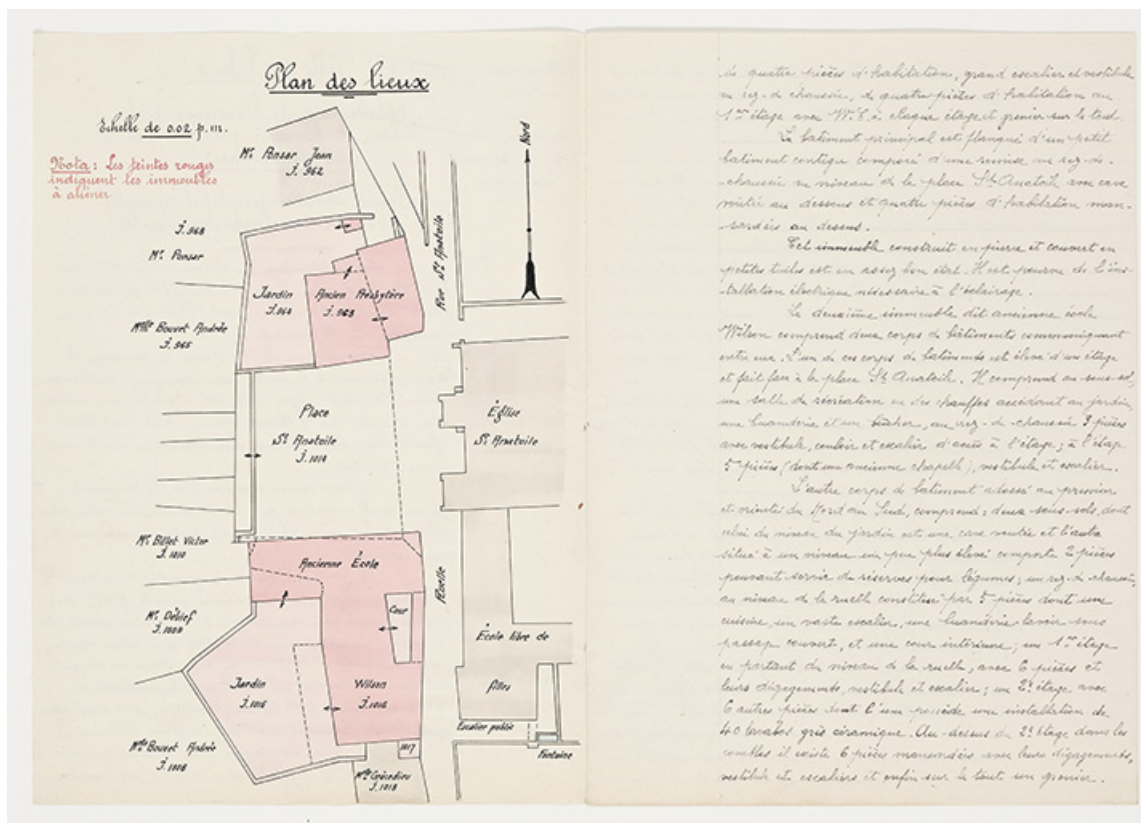 Plan des lieux
Echelle de 0.02 p.m.
Nota : Les teintes rouges
indiquent les immeubles
à aliéner
Mr. Ponser Jean
J. 962
J. 968
Mr. Ponser
Jardin
J. 964
Ancien Presbytère
J. 963
Mlle Bouvet Andrée
J. 965
Rue St. Anatoile
Nord
Place
St. Anatoile
J. 1014
Église
St. Anatoile
Mr. Billet Victor
J. 1010
Ancienne École
Ruelle
Cour
Mr. Délief
J. 1009
École libre de
filles
Jardin
J. 1015
Wilson
J. 1016
Escalier public
Fontaine
1017
Mlle Bouvet Andrée
J. 1008
J. 1018
de quatre pièces d'habitation, grand escalier et vestibule
au rez-de chaussée, de quatre pièces d'habitation au
1er étage avec W.C. à chaque étage et grenier sur le tout.
Le batiment principal est flanqué d'un petit
batiment contigu composé d'une remise au rez-de-
-chaussée au niveau de la place St. Anatoile avec cave
voûtée au dessous et quatre pièces d'habitation man-
-sardées au dessus.
Cet immeuble construit en pierre et couvert en
petites tuiles est en assez bon état. Il est pourvu de l'ins-
-tallation électrique nécessaire à l'éclairage.
Le deuxième immeuble dit ancienne école
Wilson comprend deux corps de bâtiments communiquant
entre eux. L'un de ces corps de batiments est élevé d'un étage
et fait face à la place St. Anatoile. Il comprend au sous-sol,
une salle de récréation ou des chauffes accédant au jardin,
une buanderie et un bûcher, au rez-de chaussée 3 pièces
avec vestibule, couloir et escalier d'accès à l'étage ; à l'étage
5 pièces (dont une ancienne chapelle), vestibule et escalier.
L'autre corps de batiment adossé au premier
et orienté du Nord au Sud, comprend : deux sous-sols, dont
celui du niveau du jardin est une cave voûtée et l'autre
situé à un niveau un peu plus élevé comporte 2 pièces
pouvant servir de réserves pour légumes ; un rez-de chaussée,
au niveau de la ruelle constitué par 5 pièces dont une
cuisine, un vaste escalier, une buanderie lavoir sous
passage couvert, et une cour intérieure ; un 1er étage
en partant du niveau de la ruelle, avec 6 pièces et
leurs dégagements, vestibule et escalier ; un 2e étage avec
6 autres pièces dont l'une possède une installation de
40 lavabos grès céramique. Au-dessus du 2e étage dans les
combles il existe 6 pièces mansardées avec leurs dégagements,
vestibule et escaliers et enfin sur le tout un grenier.